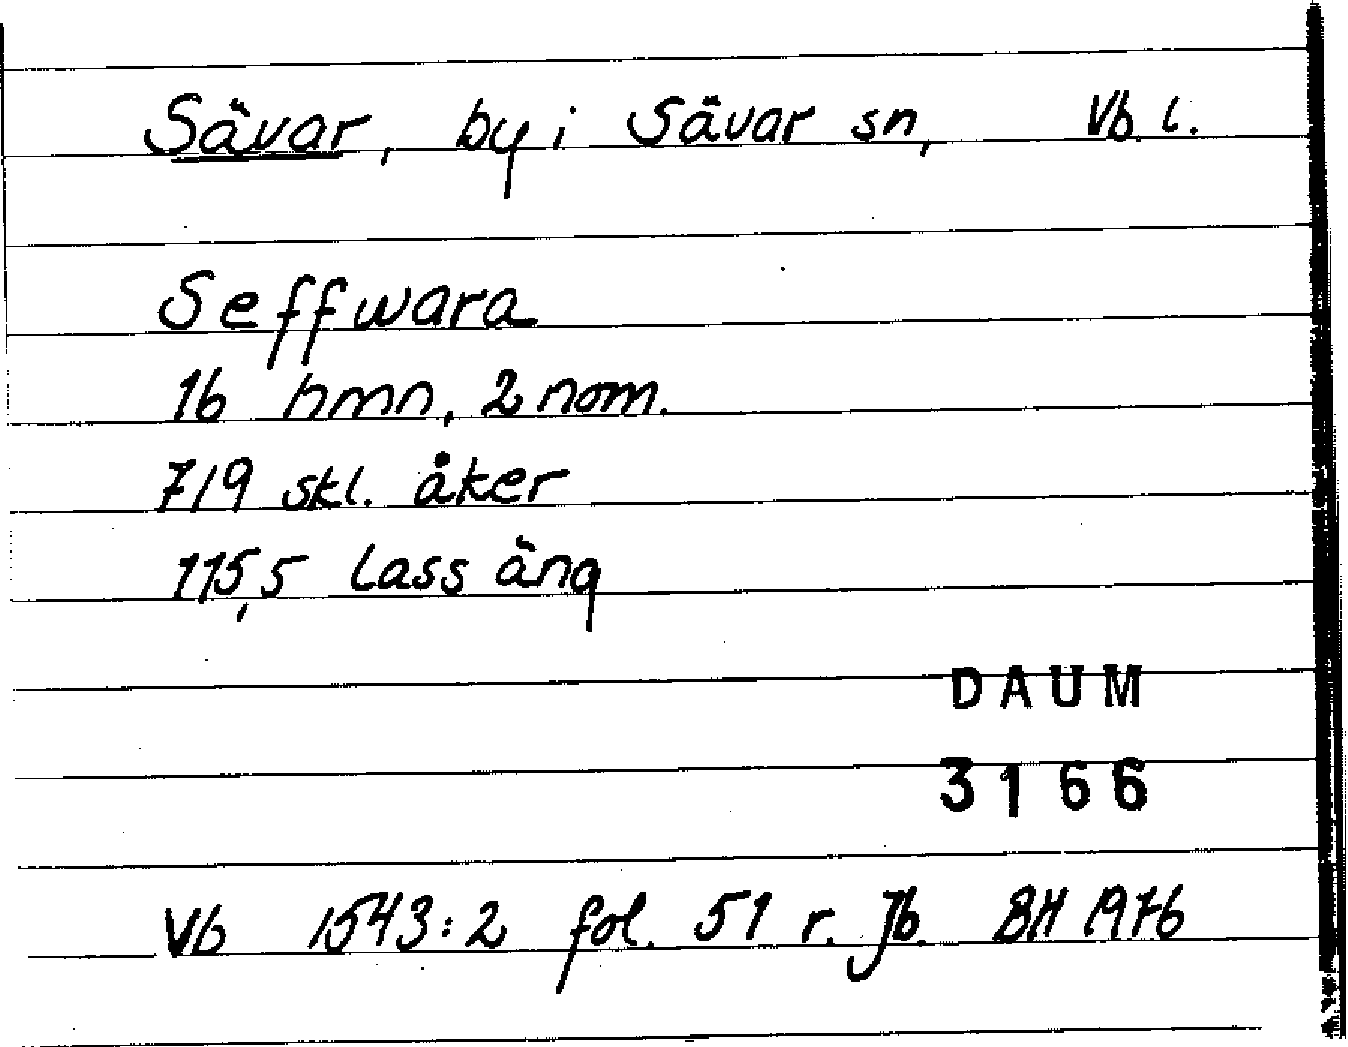 Sävar, by i Sävar sn, Vb. l.
Seffwara
16 hmn, 2 nom.
719 skl. åker
115,5 lass äng
DAUM
3166
Vb 1543:2 fol. 51 r. Jb. BH 1976